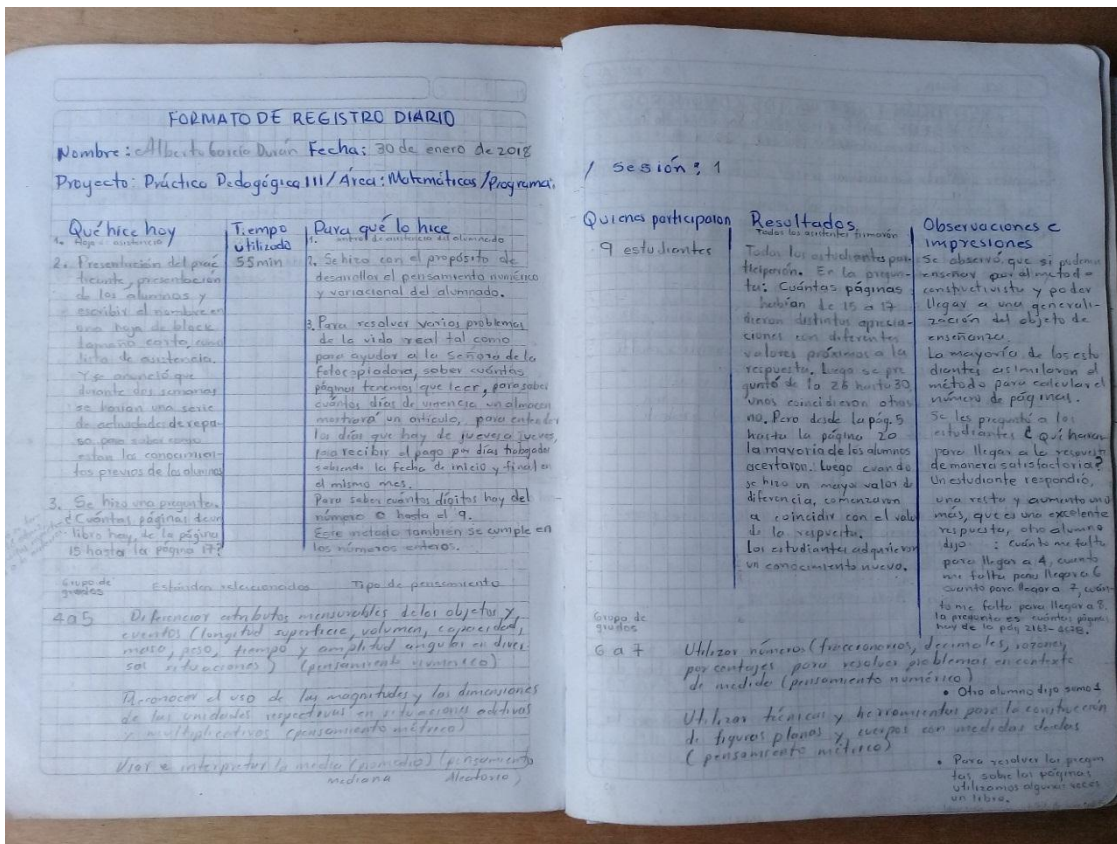 FORMATO DE REGISTRO DIARIO
Nombre: Alberto García Durán Fecha: 30 de enero de 2018
Proyecto: Práctica Pedagógica III / Área: Matemáticas / Programa:
Qué hice hoy
1. Hoja: asistencia
2. Presentación del prac
ticante, presentación
de los alumnos y
escribir el nombre en
una hoja de block
tamaño carta, como
lista de asistencia.
Y se anunció que
durante dos semanas
se harían una serie
de actividades de repa-
so para saber como
estan los conocimien-
tos previos de los alumnos
3. Se hizo una pregunta.
¿Cuántas páginas de un
libro hay, de la página
15 hasta la página 17?
Tiempo
utilizado
55min
Para qué lo hice
1. control de asistencia del alumnado
2. Se hizo con el propósito de
desarrollar el pensamiento numérico
y variacional del alumnado.
3. Para resolver varios problemas
de la vida real tal como
para ayudar a la Señora de la
fotocopiadora, saber cuántas
páginas tenemos que leer, para saber
cuántos días de vigencia un almacen
mostrará un artículo, para entender
los días que hay de jueves a jueves,
para recibir el pago por días trabajados
sabiendo la fecha de inicio y final en
el mismo mes.
Para saber cuántos dígitos hay del
número 0 hasta el 9.
Este metodo también se cumple en
los números enteros.
Grupo de
grados
Estándar relacionados Tipo de pensamiento
4 a 5
Diferenciar atributos mensurables de los objetos y
eventos (longitud superficie, volumen, capacidad,
masa, peso, tiempo y amplitud angular en diver
sas situaciones) (pensamiento numérico)
Reconocer el uso de las magnitudes y las dimensiones
de las unidades respectivas en situaciones aditivas
y multiplicativas (pensamiento métrico)
Usar e interpretar la media (promedio) (pensamiento
mediana Aleatorio)
/ Sesión: 1
Quienes participaron
9 estudiantes
Resultados
Todos los asistentes firmarón
Todos los estudiantes par-
ticiparón. En la pregun-
ta: Cuántas páginas
habían de 15 a 17
dieron distintas aprecia-
ciones con diferentes
valores próximos a la
respuesta. Luego se pre
guntó de la 26 hasta 30
unos coincidieron otros
no. Pero desde la pág. 5
hasta la página 20
la mayoría de los alumnos
acertaron. Luego cuando
se hizo un mayor valor de
diferencia, comenzaron
a coincidir con el valor
de la respuesta.
Los estudiantes adquirieron
un conocimiento nuevo.
Observaciones e
impresiones
Se observó que si podemos
enseñar por el metodo
constructivista y poder
llegar a una generali-
zación del objeto de
enseñanza.
La mayoría de los estu
diantes asimilaron el
método para calcular el
número de páginas.
Se les preguntó a los
estudiantes ¿Qué harían
para llegar a la respuesta
de manera satisfactoria?
Un estudiante respondió,
una resta y aumento uno
más, que es una excelente
respuesta, otro alumno
dijo : cuánto me falta
para llegar a 4, cuanto
me falta para llegar a 6
cuanto para llegar a 7, cuán-
to me falta para llegar a 8.
la pregunta es cuántas páginas
hay de la pág 2163-4178.
• Otro alumno dijo sumo 1
• Para resolver las pregun
tas, sobre las páginas
utilizamos algunas veces
un libro.
Grupo de
grados
6 a 7
Utilizar números (fraccionarios, decimales, razones,
porcentajes para resolver problemas en contexto
de medida (pensamiento numérico)
Utilizar técnicas y herramientas para la construcción
de figuras planas y cuerpos con medidas dadas
(pensamiento métrico)